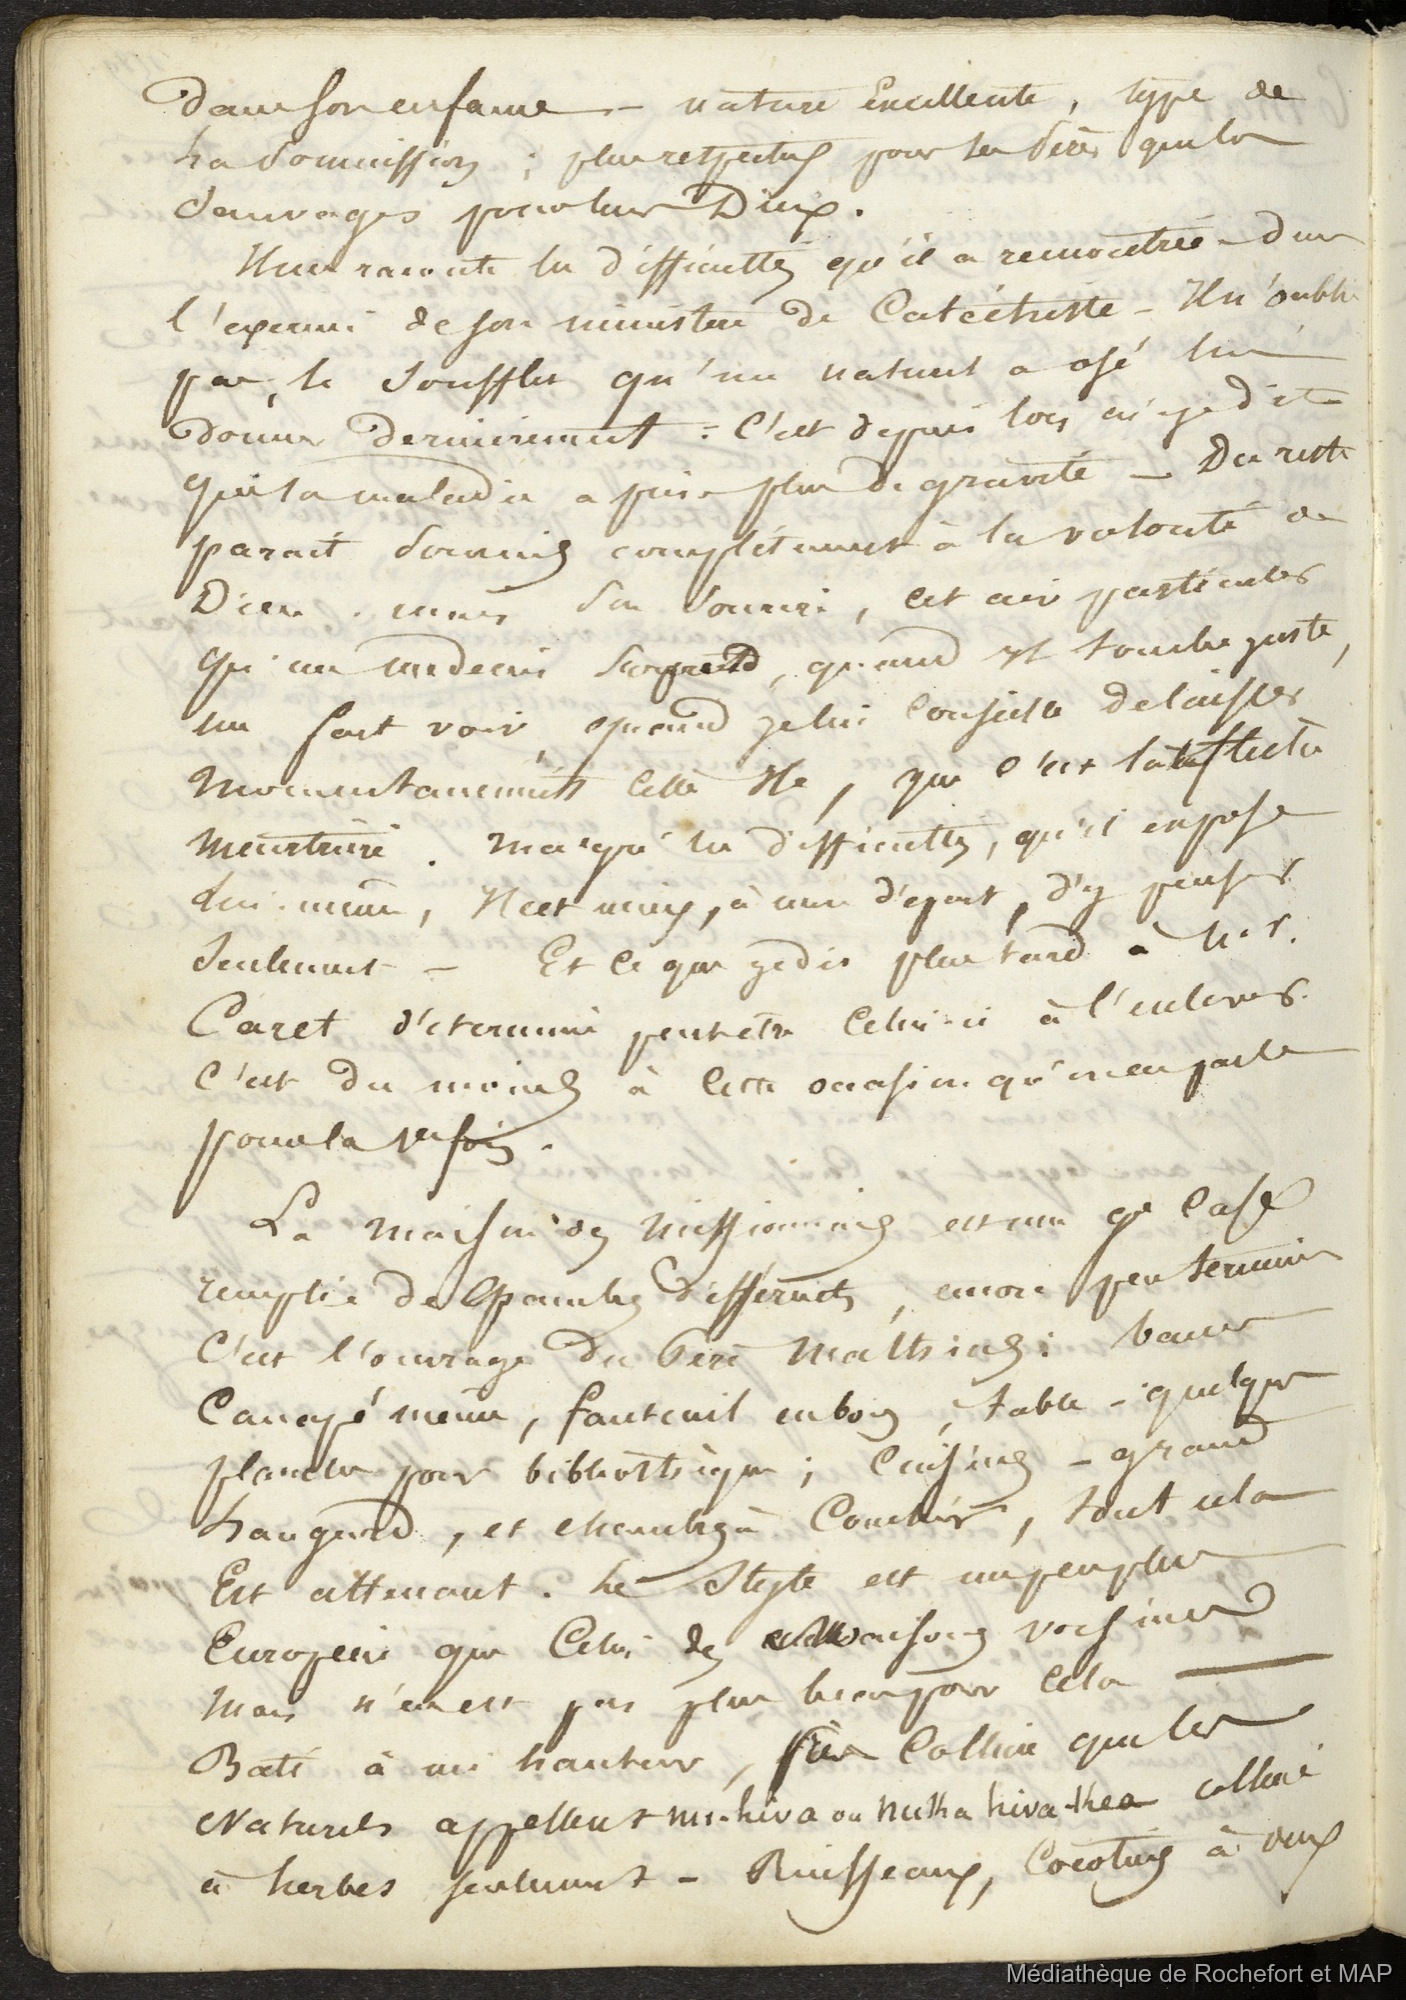 dans son enfance — nature Excellente, type de
la soumission ; plus respectueux pour les Pères que les
Sauvages pour leurs Dieux.
Il me raconte les difficultés qu'il a rencontrées dans
l'exercice de son ministère de Catéchiste — Il n'oublie
pas, le soufflet qu'un naturel a osé lui
donner dernièrement : C'est depuis lors, m'a-je dit
que sa maladie a pris plus de gravité — Du reste
parait soumis complètement à la volonté de
Dieu . mais son sourire, cet air particulier
qu'un médecin surprend, quand il touche juste,
me fait voir, quand je lui conseille de laisser
momentanément cette Ile, que c'est là
meurtrière . Malgré les difficultés, qu'il expose
lui-même, Il est mieux, à mon départ, d'y penser
seulement — Et ce que je dis plus tard à Mr.
Caret détermine peutêtre Celui-ci à l'enlever.
C'est du moins à cette occasion qu'on en parle
pour la 1ere fois.
La maison des Missionnaires est une gde Case
remplie de Chambres différentes, encore peu terminée
C'est l'ouvrage du Père Mathias : bancs
Canapé même, fauteuil en bois, table - quelques
planches pour bibliothèque ; Cuisine — grand
hangard, et chambre à Coucher, tout cela
Est attenant . Le Style est un peu plus
Européen que Celui des maisons voisines
mais n'en est pas plus beau pour cela —
Bati à mi hauteur, sur Colline que les
Naturels appellent mu-hiva ou nuka hiva-hea colline
à herbes seulement — Ruisseaux, Cocotiers à deux
Médiathèque de Rochefort et MAP